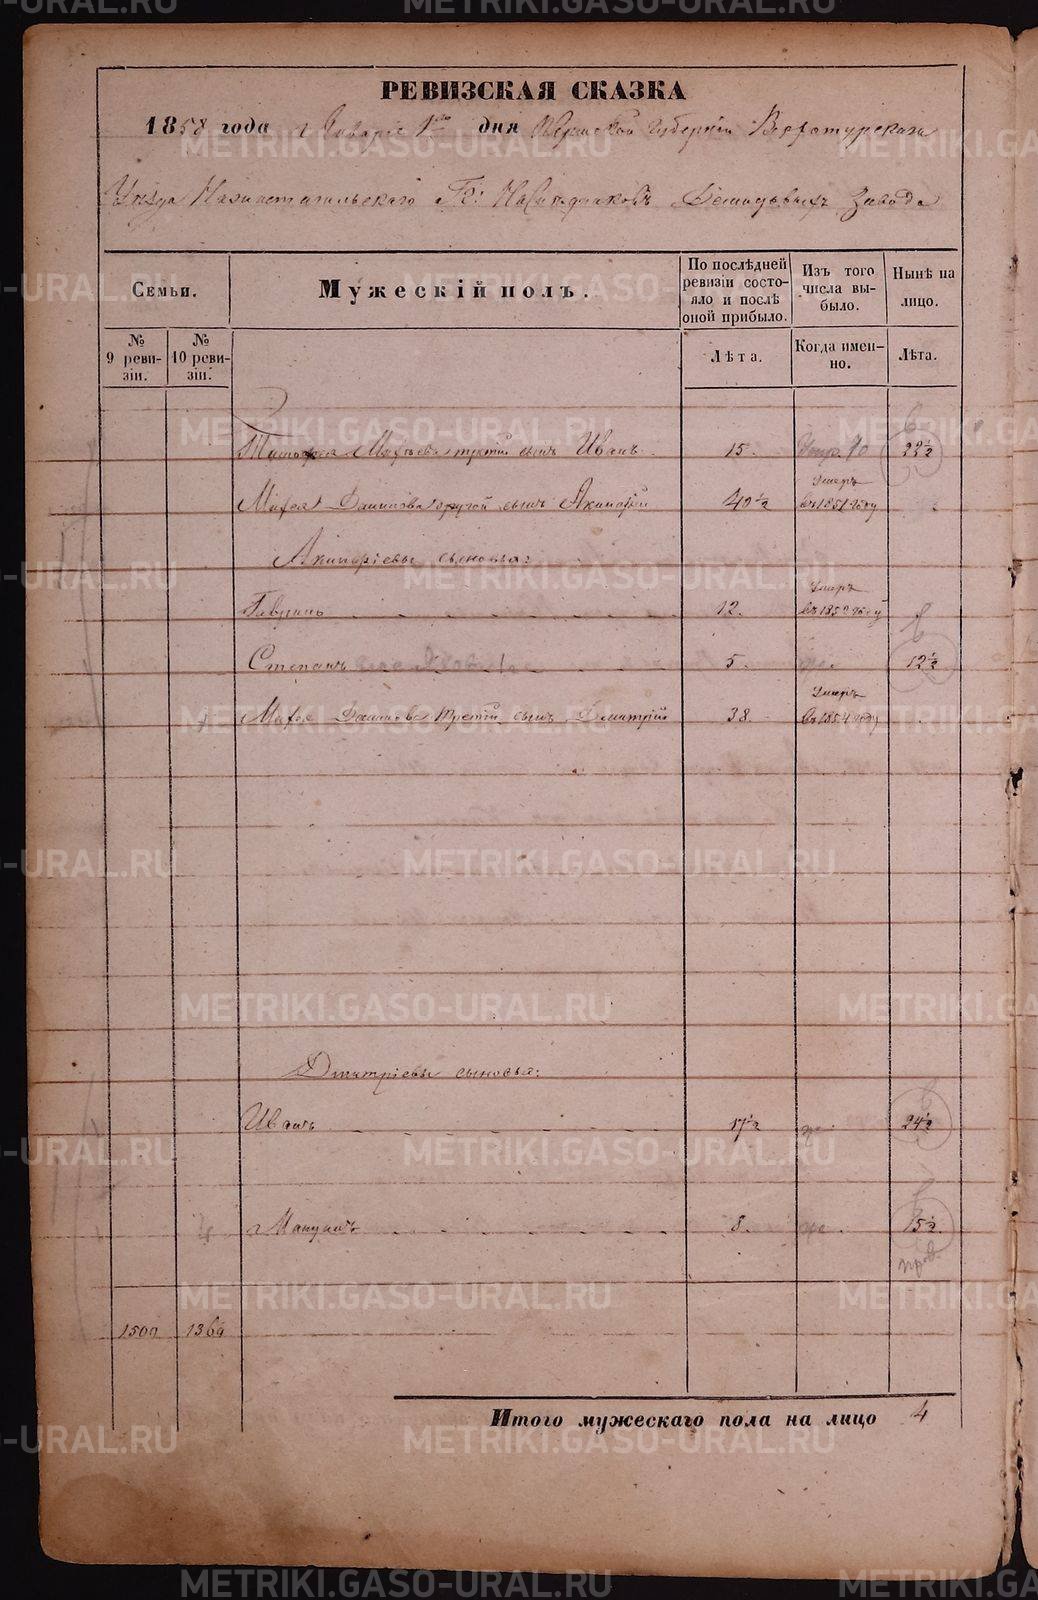 РЕВИЗСКАЯ СКАЗКА
1858 года Января 1го дня Пермской Губерніи Верхотурскаго
Уѣзда Нижнетагильскаго Гг. Наслѣдниковъ Демидовыхъ Завода
Семьи.
Мужескій полъ.
По послѣдней ревизіи состояло и послѣ оной прибыло.
Изъ того числа выбыло.
Нынѣ на лицо.
№ 9 ревизіи.
№ 10 ревизіи.
Лѣта.
Когда именно.
Лѣта.
третій сынъ Иванъ 15. 22½
Данилова другой сынъ Акинфій 40½ Умеръ въ 1851 году
Акинфіевы сыновья:
Гаврилъ 12. Умеръ въ 1852 году
Степанъ 5. 12½
Данилова третій сынъ Дмитрій 38. Умеръ въ 1854 году
Дмитріевы сыновья:
Иванъ 17½ 24½
8. 15½
1500 1360
Итого мужескаго пола на лицо 4
METRIKI.GASO-URAL.RU